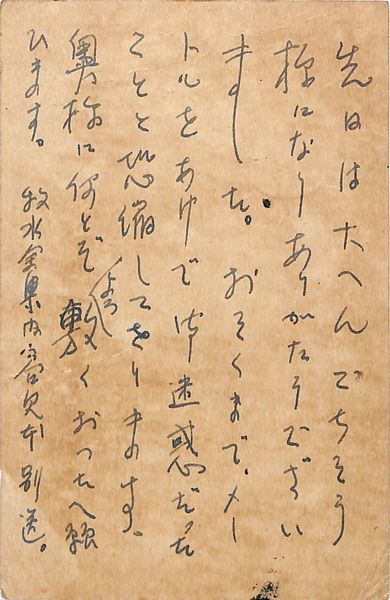 先日は大へんごちそう
様になりありがたうござい
ました。おそくまで、メー
トルをあげて御迷惑だった
ことと恐縮してをります。
奥様に何とぞよろしくおつたへ願
ひます。 牧水全集内容見本別送。